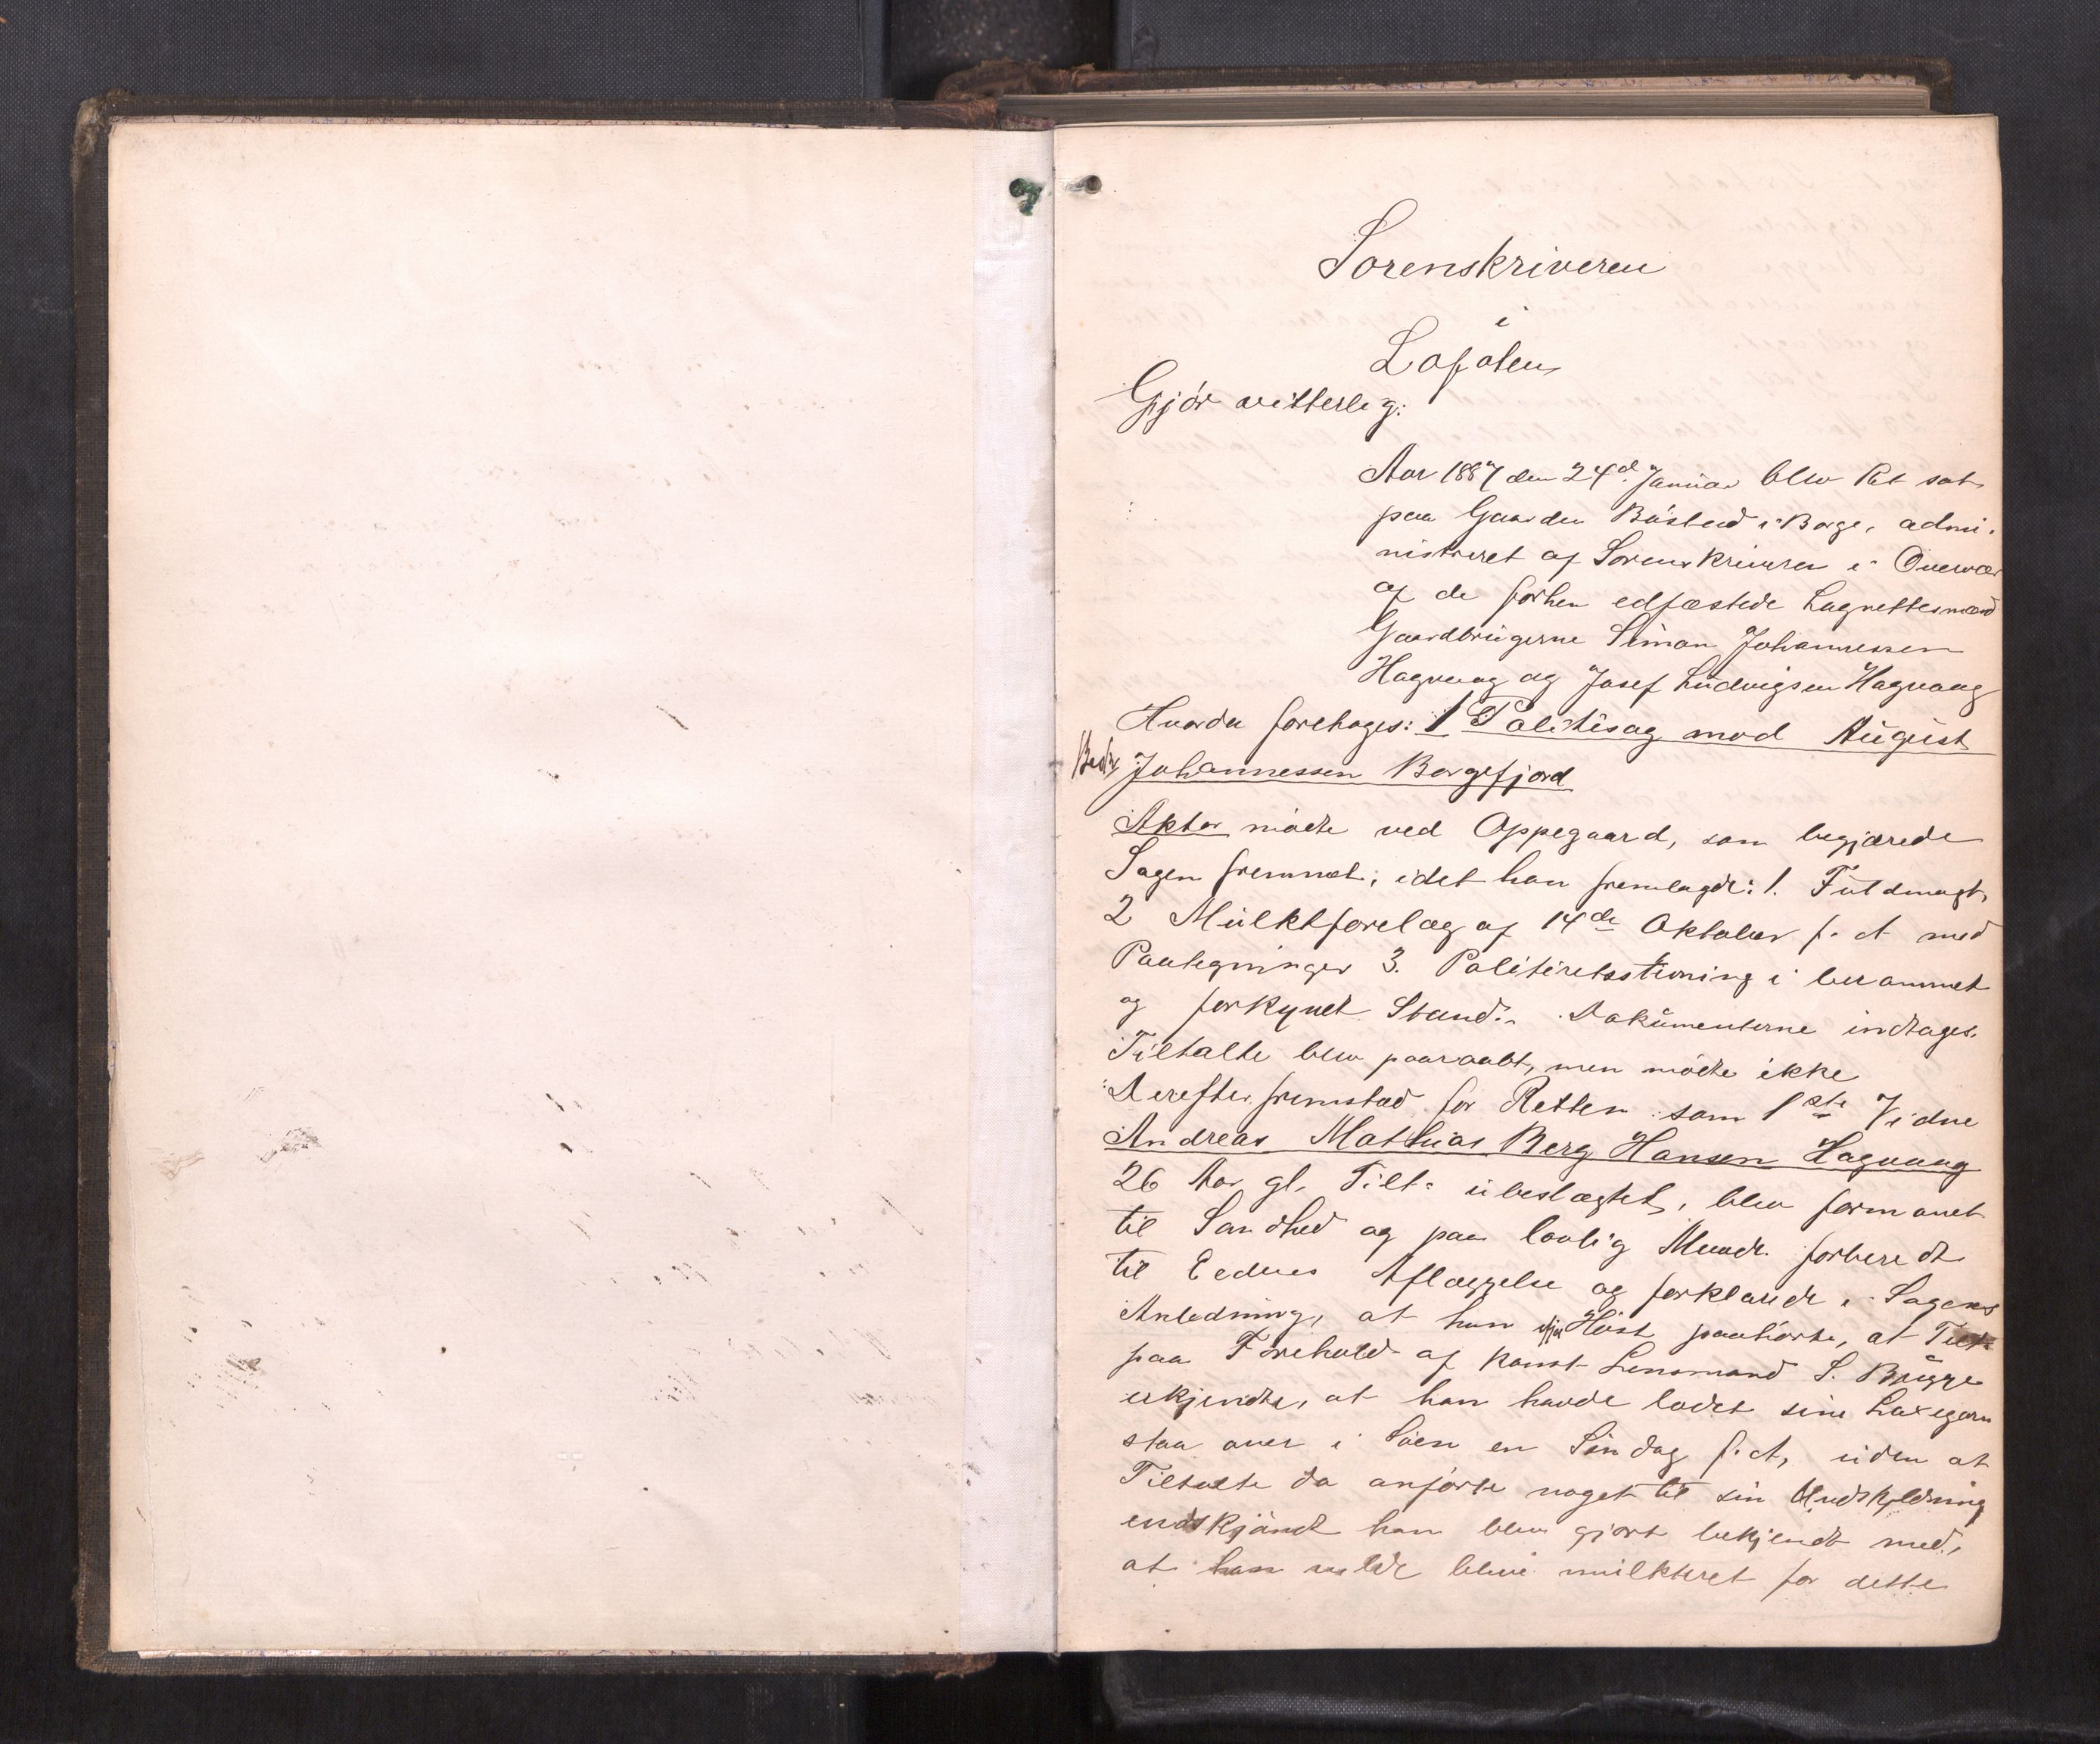 Sorenskriveren
i
Lofoten
Gjör vitterlig:
Aar 1887 den 24d. Januar blev Ret sat
paa Gaarden Böstad i Borge, admi-
nistreret af Sorenskriveren i Overvær
af de forhen edfæstede Lagrettesmænd
Gaardbrugerne Simon Johannessen
Hagvaag og Josef Ludvigsen Hagvaag
Hvorda foretoges: 1 Politisag mod August
Johannessen Borgefjord
Aktor mödte ved Oppegaard, som begjærede
Sagen fremmet, idet han fremlagde: 1. Fuldmagt,
2 Mulktforelæg af 14de Oktober f. A med
Paategninger 3. Politiretsstevning i berammet
og forkyndt Stand. Dokumenterne indtages.
Tiltalte blev paaraabt, men mödte ikke
Derefter fremstod for Retten som 1ste Vidne
Andreas Mathias Berg Hansen Hagvaag
26 Aar gl, Tilt. ubeslægtet, blev formanet
til Sandhed og paa lovlig Maade forberedt
til Eedens Aflæggelse og forklarede i Sagens
Anledning, at han Höst paahörte, at Tilt
paa Forehold af konst Lensmand S. Brygge
erkjendte, at han havde ladet sine Laxegarn
staa over i Söen en Söndag f. A, uden at
Tiltalte da anförte noget til sin Undskyldning
endskjöndt han blev gjort bekjendt med,
at han vilde blive mulkteret for dette